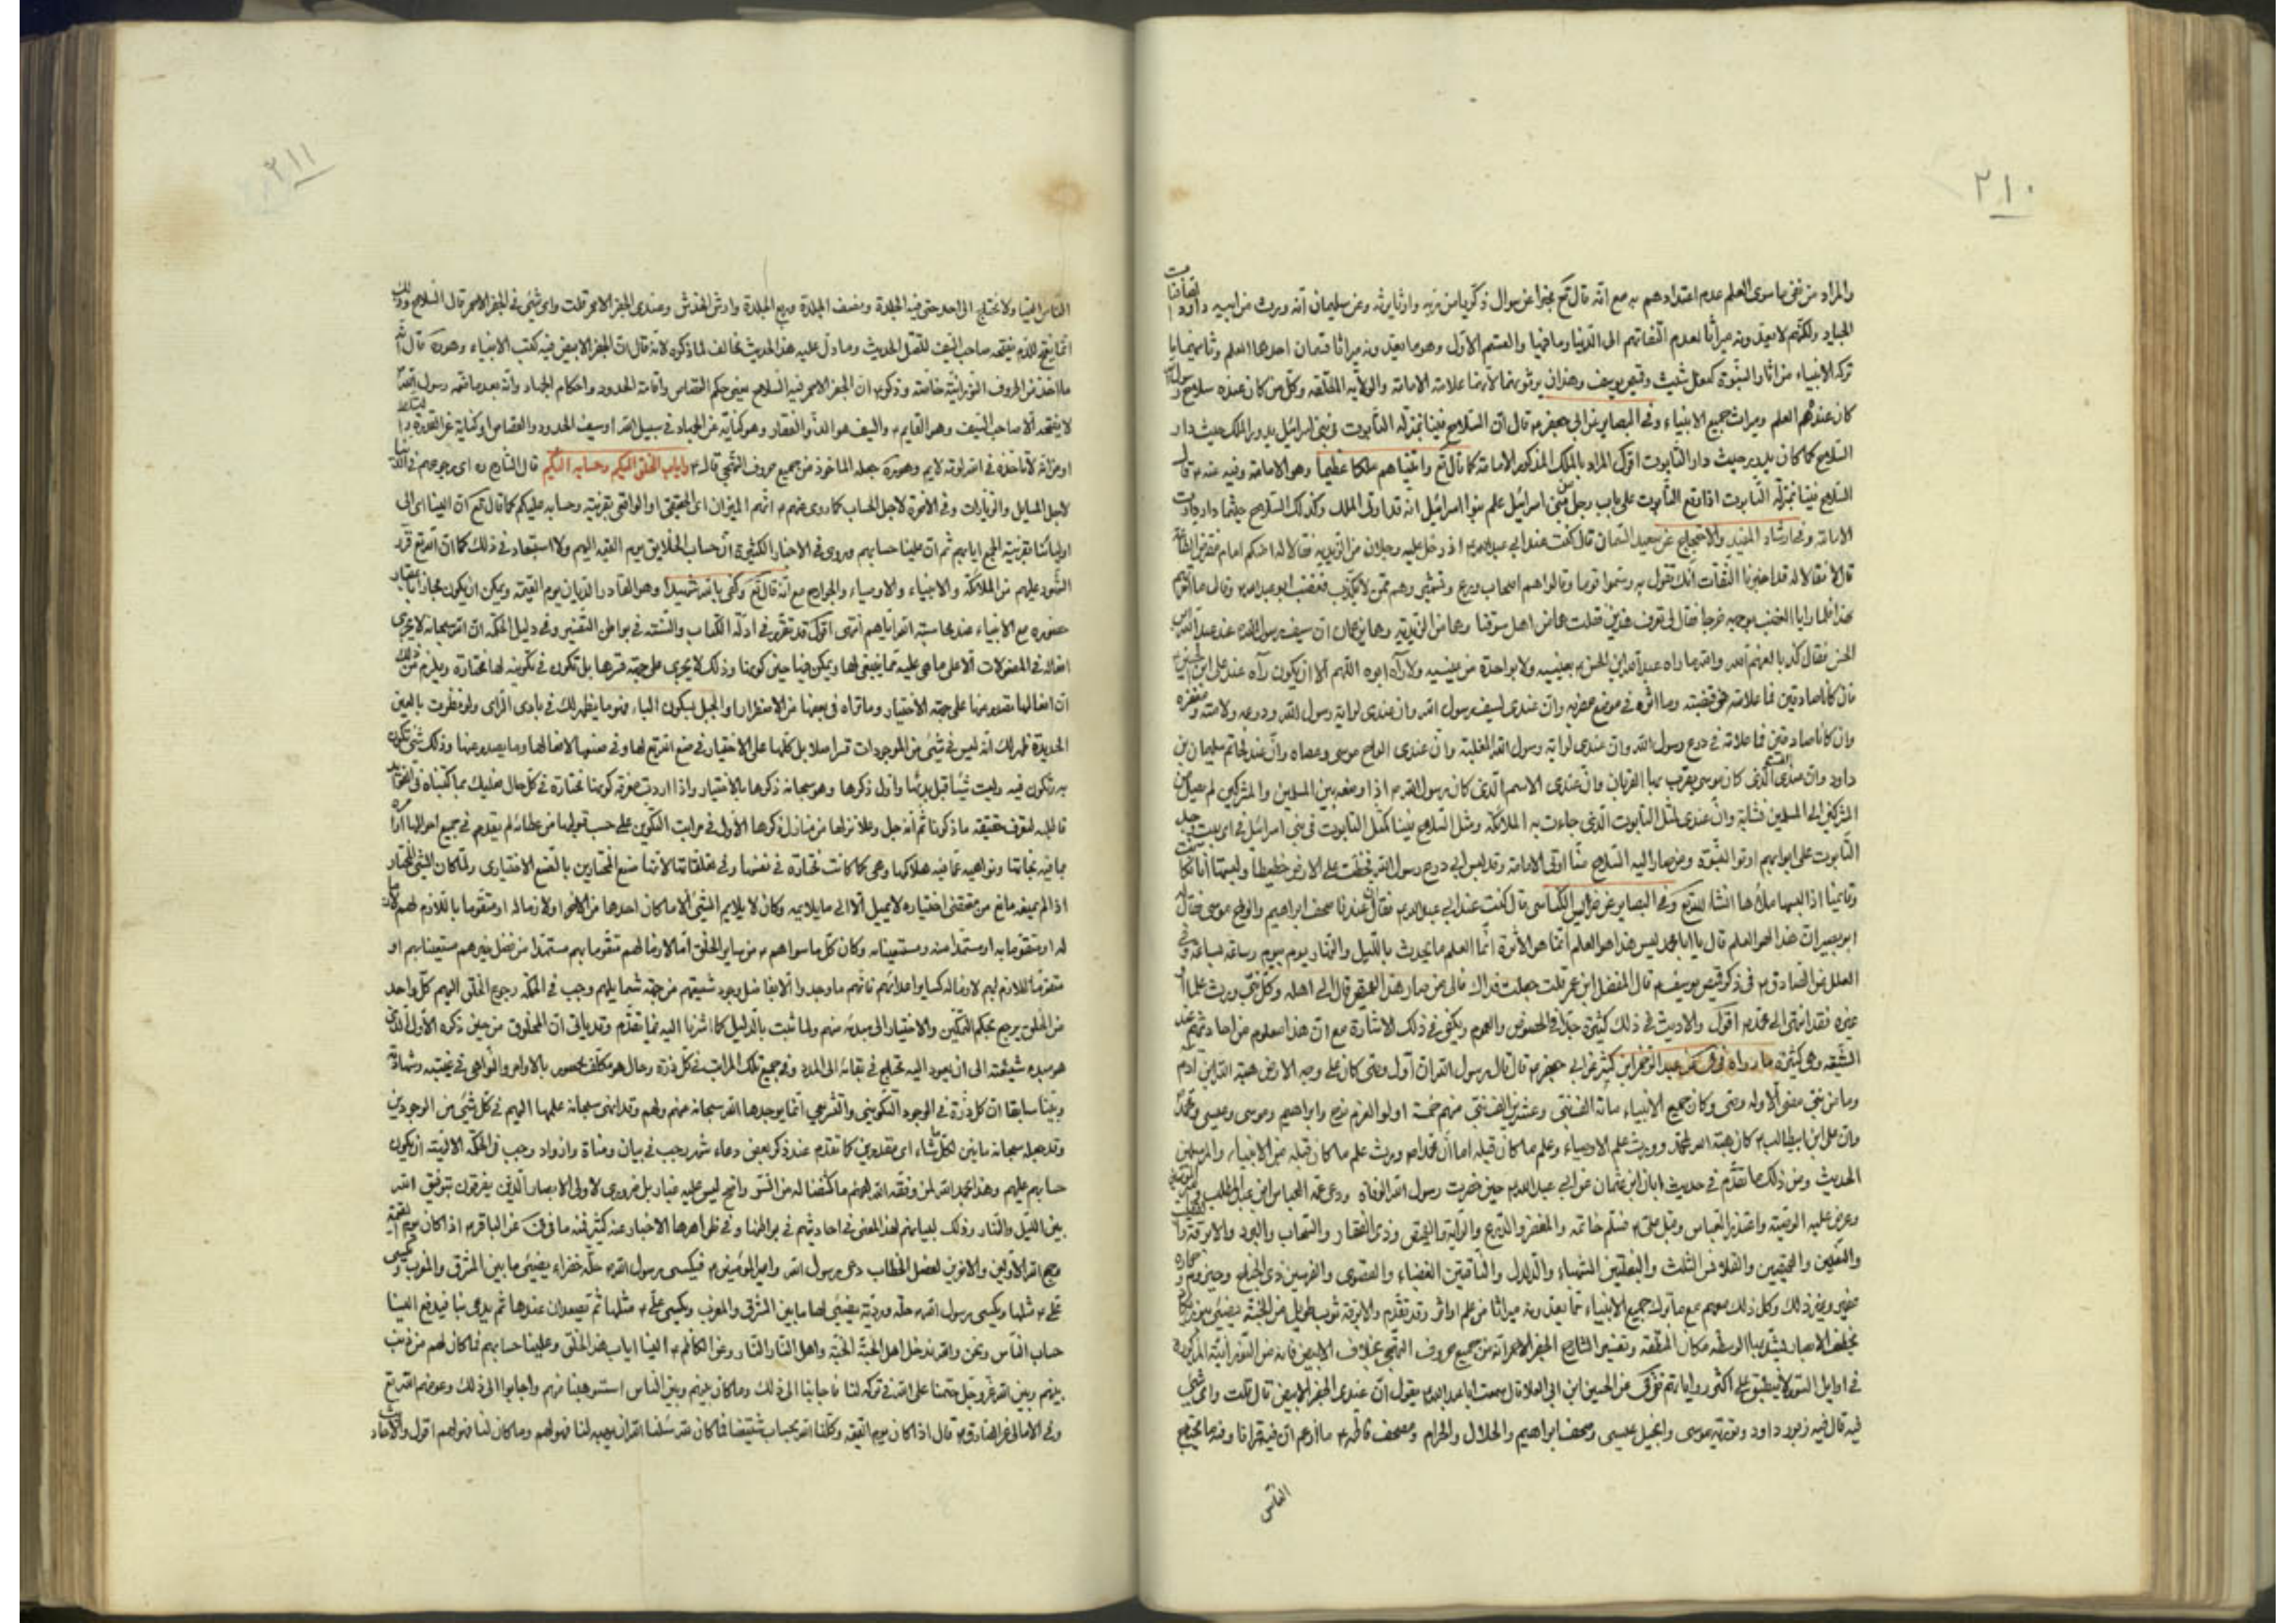 ٢١٠
والمراد من نفى ما سوى العلم عدم اعتدادهم به مع انّه قال تع مخبرا عن سوال زكريا من ربه وارثا يرثه وعن سليمان انّه ورث من ابيه داود
الجياد ولكنّهم لا يعدّونه ميراثا لعدم التفاتهم الى الدّنيا وما فيها والقسم الاوّل وهو ما يعدّونه ميراثا قسمان احدهما العلم وثانيهما ما
تركه الانبياء من اثار النبّوة كنعل شيث وقميص يوسف وهذان يرثونهما لأنهما علامة الامامة والولاية المطلقه وكلّ من كان عنده سلاح رسول الله
كان عندهم العلم وميراث جميع الانبياء وفى البصاير عن ابى جعفر ع قال انّ السلاح فينا بمنزلة التّابوت فى بنى اسرائيل يدور الملك حيث دار
السلاح كما كان يدور حيث دار التّابوت اقول المراد بالملك المذكور الامامة كما قال تع واتيناهم ملكا عظيما وهو الامامة وفيه عنه ع قال
السلاح فينا بمنزلة التّابوت اذا وقع التّابوت على باب رجل من بنى اسرائيل علم بنوا اسرائيل انه قد اوتى الملك وكذلك السّلاح حيثما دار دارت
الامامة وفى ارشاد المفيد والاحتجاج عن سعيد السّمان قال كنت عند ابى عبدالله ع اذ دخل عليه رجلان من الزيديه فقالا له افيكم امام مفترض الطاعة
قال لا فقالا له قد اخبرنا عنك الثّقات انّك تقول به وسمّوا قوما وقالوا هم اصحاب ورع وتشمير وهم ممّن لا يكذب فغضب ابو عبدالله وقال ما امرتهم
بهذا فلمّا رايا الغضب بوجهه خرجا فقال لى تعرف هذين قلت هما من اهل سوقنا وهما من الزيديّه وهما يزعمان انّ سيف رسول الله عند عبدالله بن
الحسن فقال كذبا لعنهم الله والله ما راه عبدالله ابن الحسن بعينيه ولا بواحدة من عينيه ولا رآه ابوه اللهم الّا ان يكون رآه عند على ابن الحسين
فان كانا صادقين فما علامة فى مقبضه وما اثر فى موضع مضربه وانّ عندى لسيف رسول الله وان عندى لراية رسول الله ودرعه ولامته ومغفره
وان كانا صادقين فما علامة فى درع رسول الله وان عندى لراية رسول الله المغلبة وانّ عندى الواح موسى وعصاه وانّ عندى لخاتم سليمان بن
داود وانّ عندى الطست الّذى كان موسى يقرب بها القربان وانّ عندى الاسم الّذى كان رسول الله ص اذا وضعه بين المسلمين والمشركين لم يصل من
المشركين الى المسلمين نشابة وانّ عندى لمثل التابوت الّذى جاءت به الملائكة ومثل السّلاح فينا كمثل التابوت فى بنى اسرائيل فى اى بيت وجد
التّابوت على ابوابهم اوتوا النبّوة ومن صار اليه السّلاح منّا اوتى الامامة وقد لبس ابى درع رسول الله فخطّت على الارض خطيطا ولبستها انا فكانت
وقايمنا اذا لبسها ملأها انشاء الله تع وفى البصاير عن ضريس الكناسى قال كنت عند ابى عبدالله ع فقال ان عندنا صحف ابراهيم والواح موسى فقال
ابو بصير انّ هذا لهو العلم قال يا ابا محمد ليس هذا هو العلم انّما هو الأثرة انّما العلم ما يحدث بالليل والنّهار يوم بيوم وساعه بساعه وفى
العلل عن الصّادق ع فى ذكر قميص يوسف ع قال المفضل ابن عمر قلت جعلت فداك فالى من صار هذا القميص قال الى اهله وكلّ نبىّ ورث علما او
غيره فقد انتهى الى محمّد ص اقول والاديث فى ذلك كثيرة جدّا فى الخصوص والعموم ويكفى فى ذلك الاشارة مع انّ هذا معلوم من احاديثهم عند
الشّيعه وهى كثيرة ما رواه فى فى عن عبد الرّحمن ابن كثير عن ابى جعفر ع قال قال رسول الله ان اول وصى كان على وجه الارض هبة الله ابن آدم
وما من نبى مضى الّا وله وصى وكان جميع الانبياء مائة الف نبى وعشرين الف نبى منهم خمسة اولوا العزم نوح وابراهيم وموسى وعيسى ومحمّد
وانّ على ابن ابيطالب ع كان هبة الله لمحمّد وورث علم الاوصياء وعلم ما كان قبله اما انّ محمدا ص ورث علم ما كان قبله من الانبياء والمرسلين
الحديث ومن ذلك ما تقدّم فى حديث ابان ابن عثمان عن ابى عبدالله ع حين حضرت رسول الله الوفاة ودعى عمّه العباس ابن عبدالمطلب
وعرض عليه الوصيّة واعتذر العباس وقبل على ع فسلم خاتمه والمغفر والدّرع والرّاية والقميص وذى الفقار والسّحاب والبرد والابرقة
والنّعلين والقميصين والقلانس الثلث والبغلتين الشهباء والدّلدل والنّاقتين الغضباء والقصوى والفرسين ذى الجناح وحيزوم
عفير وغير ذلك وكل ذلك معهم مع ما ترك جميع الانبياء ممّا يعدّونه ميراثا من علم او اثر وقد تقدّم والابرقة ثوب طويل من الجنّة
يخطف الابصار فيشدّ بها الوسط مكان المنطقه وتفسير الشارح الجفر الاحمر انّه من جميع حروف التهجّى بخلاف الابيض فانه من النّورانيّة المذكورة
فى اوايل السّور لا ينطبق على اكثر رواياتهم ففى فى عن الحسين ابن ابى العلا قال سمعت ابا عبدالله يقول انّ عندى الجفر الابيض قال قلت واى شئ
فيه قال فيه زبور داود وتورية موسى وانجيل عيسى وصحف ابراهيم والحلال والحرام ومصحف فاطمه ع ما ازعم انّ فيه قرانا وفيه ما يحتاج
النّاس
٢١١
النّاس الينا ولا نحتاج الى احد حتى فيه الجلدة ونصف الجلدة وربع الجلدة وارش الخدش وعندى الجفر الاحمر قلت واى شئ فى الجفر الاحمر قال السّلاح وذلك
انّما يفتح للدّم يفتحه صاحب السّيف للقتل الحديث وما دلّ عليه هذا الحديث مخالف لما ذكره لانّه قال انّ الجفر الابيض فيه كتب الانبياء وهو ره قال انّه
ما اخذ من الحروف النّورانيّة خاصّة وذكر ع انّ الجفر الاحمر فيه السّلاح يعنى حكم القصاص واقامة الحدود واحكام الجهاد وانّه بعد ما ختمه رسول الله
لا يفتحه الّا صاحب السّيف وهو القايم ع والسّيف هو ذو الفقار وهو كناية عن الجهاد فى سبيل الله او سيف الحدود والقصاص او كناية عن القدرة
او من انّه لا تاخذه فى الله لومة لايم وهو ره جعله الماخوذ من جميع حروف التّهجى قال ع واياب الخلق اليكم وحسابه اليكم قال الشارح ره اى رجوعهم فى الدّنيا
لاجل المسايل والزّيارات وفى الاخرة لاجل الحساب كما روى عنهم ع انّهم الميزان اى الحقيقى او الواقى بقرينة وحسابه عليكم كما قال تع انّ الينا اى الى
اوليائنا بقرينة الجمع ايابهم ثم انّ علينا حسابهم وروى فى الاخبار الكثيرة انّ حساب الخلايق يوم القيمه اليهم ولا استبعاد فى ذلك كما انّ الله تع قرّر
الشّهود عليهم من الملائكة والانبياء والاوصياء والجوارح مع انّه قال تع وكفى بالله شهيدا وهو القادر الديّان يوم القيمة ويمكن ان يكون مجازا باعتبار
حضوره مع الانبياء عند محاسبة الله ايّاهم انتهى اقول قد تقرّر فى ادلّه الكتاب والسّنّة فى بواطن التّفسير وفى دليل الحكمة انّ الله سبحانه لا يجرى
افعاله فى المفعولات الّا على ما هى عليه ممّا ينبغى لها ويمكن فيها حين كونها وذلك لا يجرى على جهة قسرها بل تكون فى تكوينه لها مختارة ويلزم من ذلك
انّ افعالها تصدر عنها على جهة الاختيار وما تراه فى بعضها من الاضطرار او الجبل بسكون الباء فهو ما يظهر لك فى بادى الرّاى ولو نظرت بالعين
الحديدة ظهر لك انّه ليس فى شئ من الموجودات قسرا اصلا بل كلّها على الاختيار فى صنع الله تع لها وفى صنعها لافعالها وما يصدر عنها وذلك شئ تكون
به وتكون فيه وليست شيئا قبل بدئها واول ذكرها وهو سبحانه ذكرها بالاختيار واذا اردت معرفة كونها مختارة فى كلّ حال فعليك بما كتبناه فى الفوائد
فاطلبه لتعرف حقيقة ما ذكرنا ثم انّه جل وعلا نزلها من منازل ذكرها الأول فى مراتب التّكوين على حسب قبولها من عطائه لم يقدم فى جميع احوالها امرا
بما فيه نجاتها ونواهيه عمّا فيه هلاكها وهى كما كانت مختارة فى نفسها وفى متعلقاتها لانّها صنع المختارين بالصّنع الاختيارى ولمّا كان الشئ المختار
اذا لم يمنعه مانع من مقتضى اختياره لا يميل الّا الى ما يلايمه وكان لا يلايم الشّئ الّا ما كان احدهما من الاخر او لازما له او متقوما باللازم لهم كان
له او متقوما به او مستمدا منه ومستعينا به وكان كل ما سواهم ع من ساير الخلق امّا لازما لهم متقوما بهم مستمدّا من فضل غيرهم مستعينا بهم او
متقوّما للازم لهم لازما له كساير اعدائهم فانّهم ما وجدوا الّا بفاضل وجود شيعتهم من جهة شمايلهم وجب فى الحكمه رجوع الخلق اليهم كلّ واحد
من الخلق يرجع بحكم التّمكين والاختيار الى مبدئه منهم ولما ثبت بالدّليل كما اشرنا اليه فيما تقدّم وقد ياتى انّ المخلوق من حين ذكره الأوّل الذى
هو مبدء شيئيته الى ان يعود اليه يحتاج فى بقائه الى المدد وفى جميع تلك المراتب فى كلّ ذرّة وحال هو مكلّف محصور بالاوامر والنّواهى فى غيبته وشهادته
وبيّنا سابقا انّ كلّ ذرّة فى الوجود التّكوينى والتّشريعى انّما يوجدها الله سبحانه منهم ولهم وقد انهى سبحانه علمها اليهم فى كلّ شئ من الوجودين
وقد جعله سبحانه مابين لكل ما شاء اى مقدورين كما تقدّم عند ذكر بعض دعاء شهر رجب فى بيان ومناة واذواد وجب فى الحكمة الالهيّة ان يكون
حسابهم عليهم وهذا بحمد الله لمن وفّقه الله لفهم ما كشفنا له من السّتر واضح ليس عليه غبار بل ضرورى لاولى الابصار الّذين يفرقون بتوفيق الله
بين الليل والنّهار وذلك لبيانهم لهذا المعنى فى احاديثهم فى بواطنها وفى ظواهرها الاخبار عنه كثيرة فمنه ما فى فى عن الباقر ع اذا كان يوم القيمة
وجمع الله الاوّلين والاخرين لفصل الخطاب دعى رسول الله وامير المؤمنين ع فيكسى رسول الله ص حلّه خضراء يضئ ما بين المشرق والمغرب ويكسى
على ع مثلها ويكسى رسول الله ص حلّه ورديّة يضئ لها ما بين المشرق والمغرب ويكسى على ع مثلها ثم يصعدان عندها ثم يدعى بنا فيدفع الينا
حساب النّاس ونحن والله ندخل اهل الجنّة الجنّة واهل النّار النّار وعن الكاظم ع الينا اياب هذا الخلق وعلينا حسابهم فما كان لهم من ذنب
بينهم وبين الله عزّوجلّ حتمنا على الله فى تركه لنا فاجابنا الى ذلك وما كان بينهم وبين النّاس استوهبناه منهم واجابوا الى ذلك وعوضهم الله تع
وفى الامالى عن الصّادق ع قال اذا كان يوم القيمة وكّلنا الله بحساب شيعتنا فما كان لله سئلنا الله ان يهبه لنا فهو لهم وما كان لنا فهو لهم اقول والاحاديث